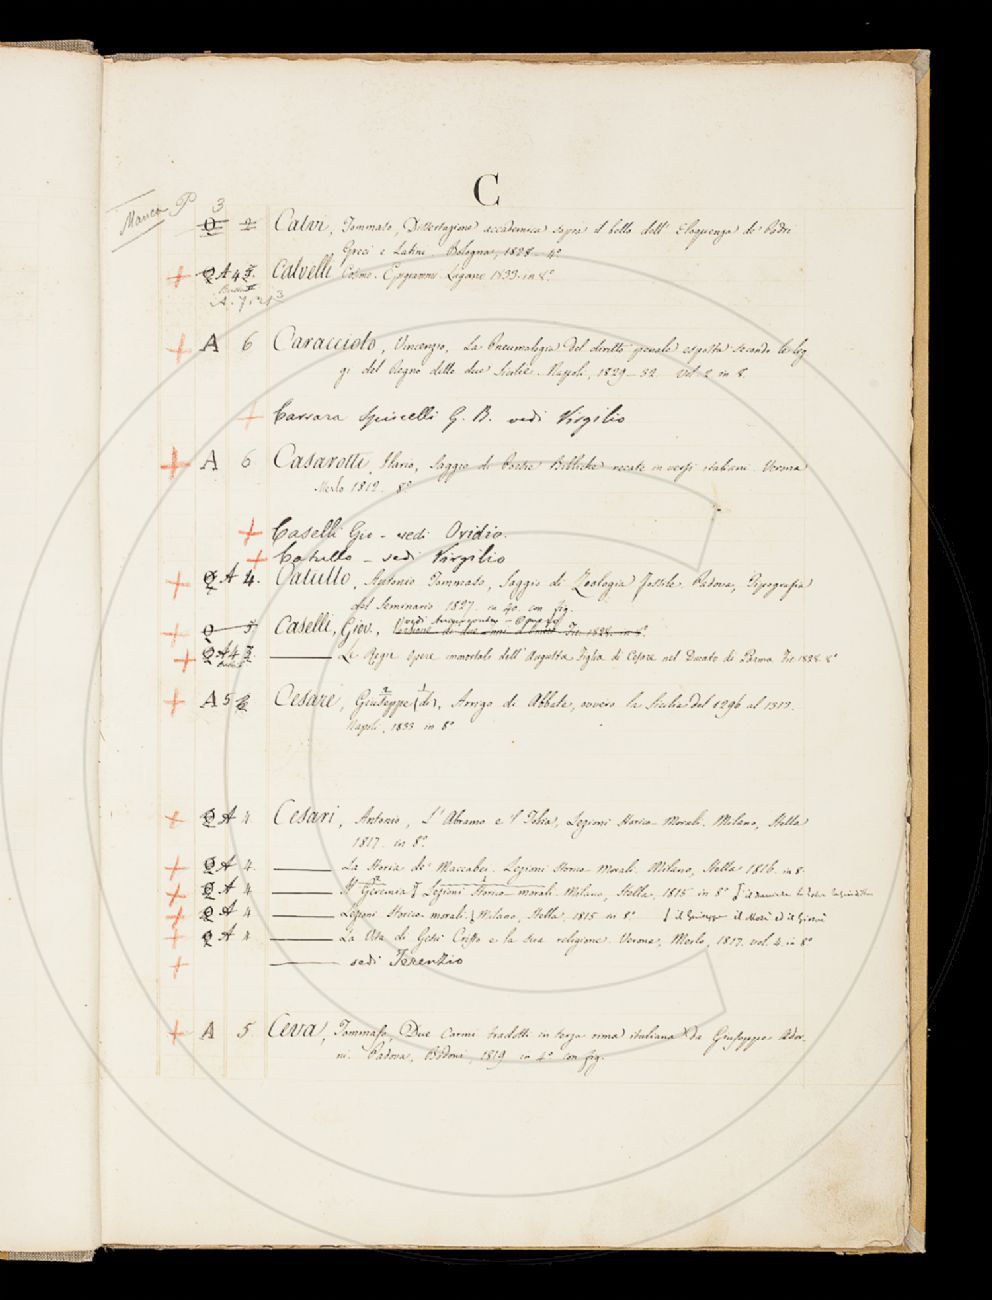 C
Manca P 3
Q 2 Calvi, Tommaso, Dissertazione accademica sopra il bello dell' Eloquenza de' Padri
Greci e Latini. Bologna, 1828 - 4°
+ Q A 4 Calvelli Cosmo. Epigrammi. Lugano 1833. in 8°
+ A 6 Caracciolo, Vincenzo, La Pneumalogia del diritto penale esposta secondo le leg
gi del Regno delle due Sicilie. Napoli, 1829-32. Vol. 2 in 8.
+ Carrara Spinelli G. B. vedi Virgilio
+ A 6 Casarotti, Ilario, Saggio di Poesie Bibliche recate in versi italiani. Verona
Merlo 1812. 8°
+ Caselli Gio - vedi Ovidio.
+ Catullo - vedi Virgilio
+ Q A 4. Catullo, Antonio Tommaso, Saggio di Zoologia Fossile. Padova, Tipografia
del Seminario 1827. in 4o. con fig.
+ Q 5 Caselli, Giov.,
+ Q A 4 ——— Le Regie Opere immortali dell' Augusta Figlia di Cesare nel Ducato di Parma 1828. 8°
+ A 5 Cesare, Giuseppe (di), Arrigo di Abbate, ovvero la Sicilia del 1296 al 1313.
Napoli, 1833 in 8°
+ Q A 4. Cesari, Antonio, L'Abramo e l' Lezioni Storico-Morali. Milano, Stella
1817. in 8°
+ Q A 4. ——— La Storia de' Maccabei. Lezioni Storico Morali. Milano, Stella 1816. in 8.
+ Q A 4 ——— Il Geremia Lezioni Storico-morali. Milano, Stella, 1815 in 8°
+ Q A 4 ——— Lezioni Storico-morali. Milano, Stella, 1815. in 8° il Giuseppe il Mosè ed il
+ Q A 4 ——— La Vita di Gesù Cristo e la sua religione. Verona, Merlo, 1817. vol. 4. in 8°
+ ——— vedi Terenzio
+ A 5 Ceva, Tommaso, Due Carmi tradotti in terza rima italiana da Giuseppe Ador.
ni. Padova, Bodoni, 1819 in 4° con fig.